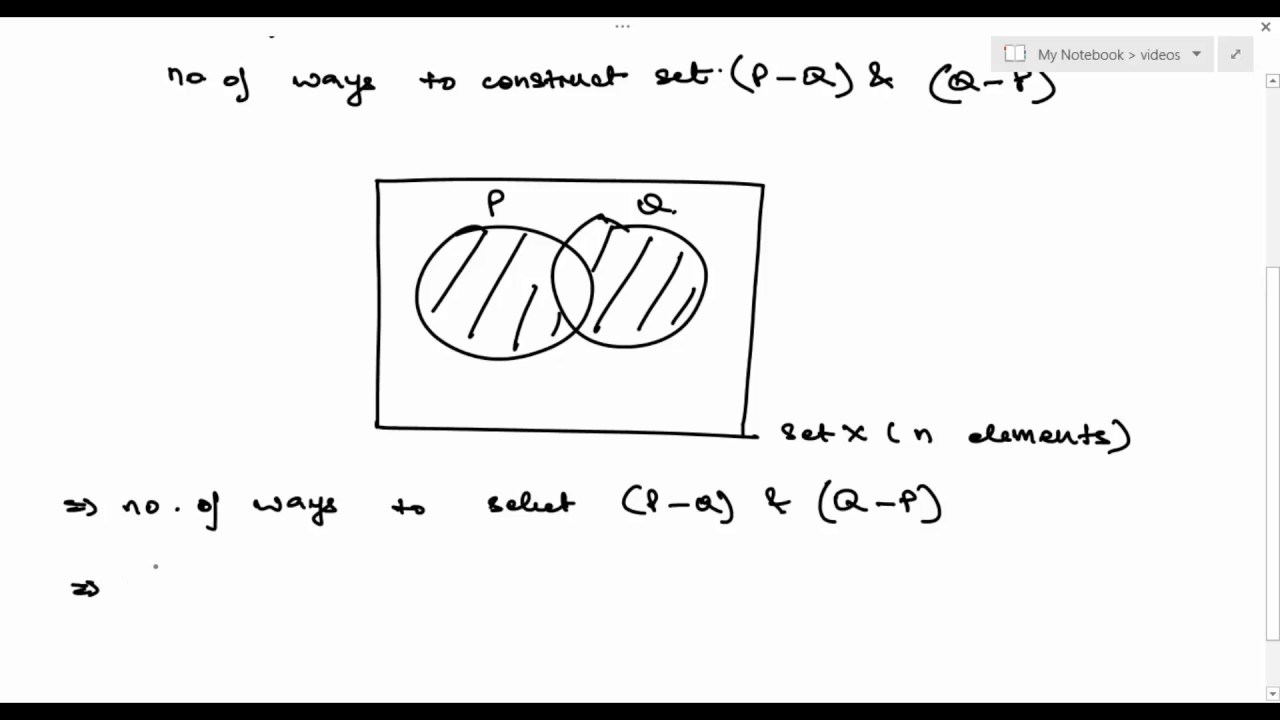 My Notebook > videos
no of ways to construct set (P-Q) & (Q-P)
P
Q
set X (n elements)
⇒ no. of ways to select (P-Q) & (Q-P)
⇒